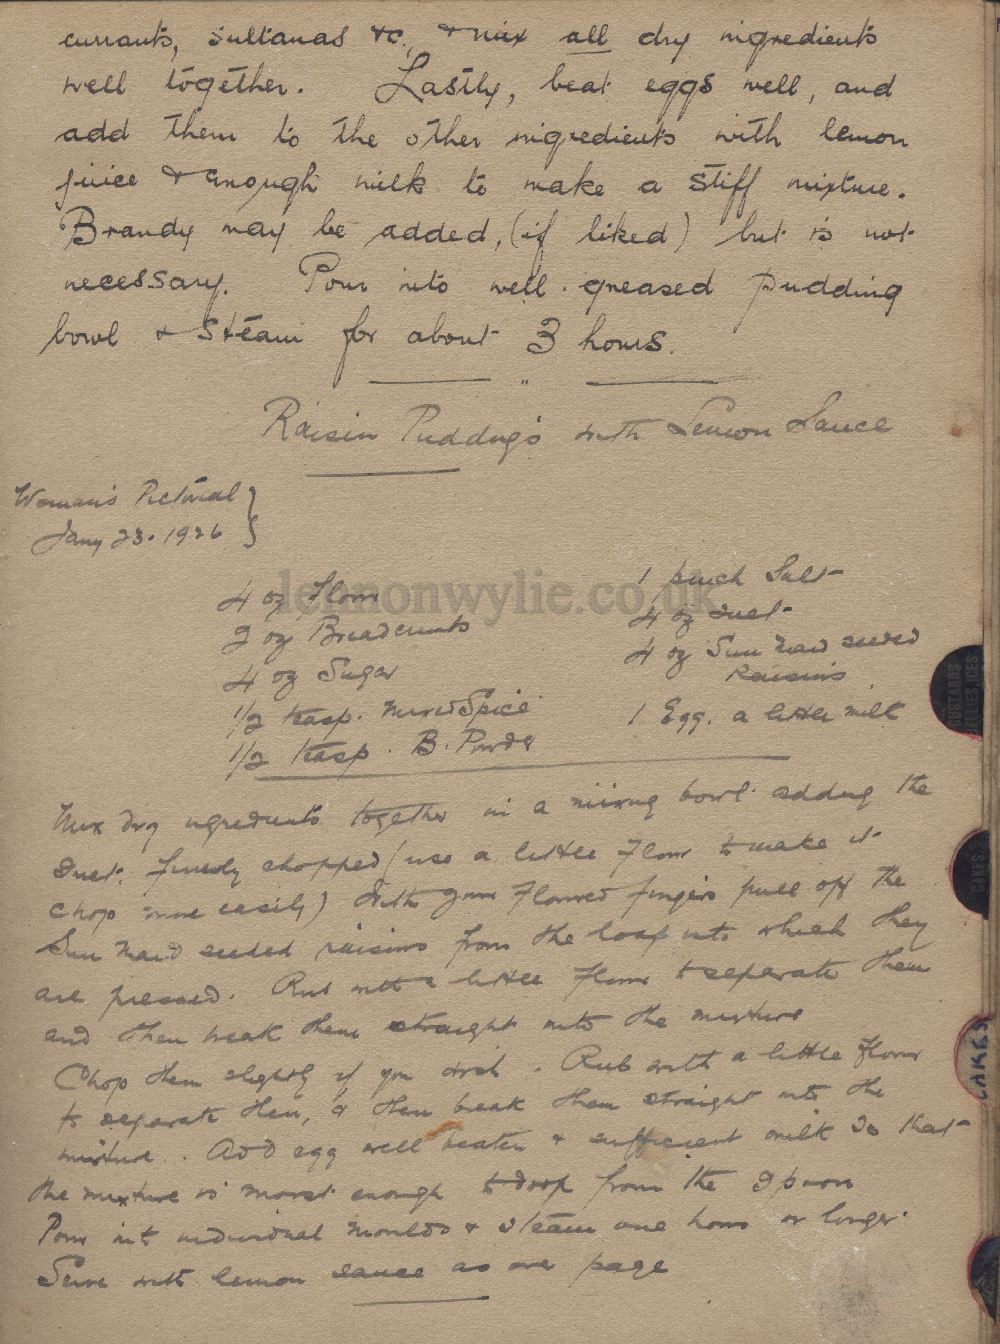 currants, sultanas &c., & mix all dry ingredients
well together. Lastly, beat eggs well, and
add them to the other ingredients with lemon
juice & enough milk to make a stiff mixture.
Brandy may be added, (if liked) but is not
necessary. Pour into well-greased pudding
bowl & steam for about 3 hours.
Raisin Puddings with Lemon Sauce
Woman's Pictorial
Jany 23. 1926
lennonwylie.co.uk
4 oz flour
2 oz Breadcrumbs
4 oz Sugar
1/2 teasp. Mixed Spice
1/2 teasp. B. Powder
1 pinch Salt
4 oz suet
4 oz Sun Maid seeded
Raisins
1 Egg. a little milk
CUSTARDS
JELLIES, ICES
Mix dry ingredients together in a mixing bowl adding the
suet. finely chopped (use a little flour to make it
chop more easily) With your floured fingers pull off the
Sun Maid seeded raisins from the loaf into which they
are pressed. Rub with a little flour to separate them
and then break them straight into the mixture
Chop them slightly if you wish. Rub with a little flour
to separate them, & then break them straight into the
mixture. Add egg well beaten & sufficient milk so that
the mixture is moist enough to drop from the spoon
Pour into individual moulds & steam one hour or longer.
Serve with lemon sauce as over page
CAKES
CAKES